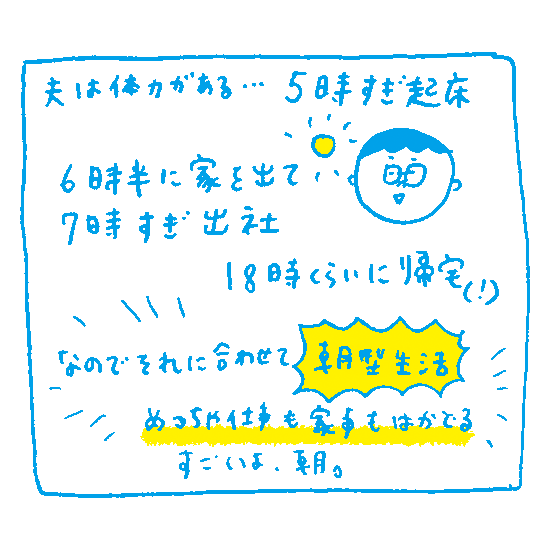 夫は体力がある… 5時すぎ起床
6時半に家を出て
7時すぎ出社
18時くらいに帰宅(!)
なのでそれに合わせて朝型生活
めっちゃ仕事も家事もはかどる
すごいよ、朝。